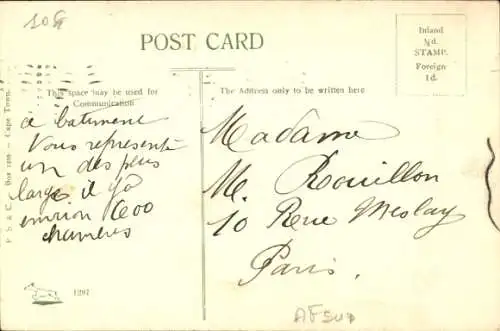 10 F
POST CARD
Inland
½d.
STAMP.
Foreign
1d.
This space may be used for
Communication
The Address only to be written here
ce batiment
Vous représente
un des plus
large il y a
environ 600
chambres
Madame
M. Rouillon
10 Rue Meslay
Paris.
P B & C. Box 1286 – Cape Town.
1297
AF SUD